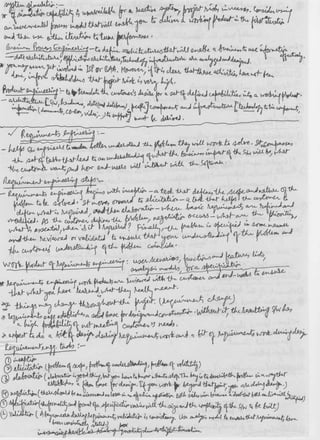 system simulation:-
of simulation capability is unavailable for a reactive system, project risk increases. Consider using
an incremental process model that will enable you to deliver a working product in the first iteration
and then use other iteration to tune performance.
Business process Engineering - to define architectures that will enable a business to use information
effectively.
- data architecture, application architecture, technology infrastructure are analyzed and designed.
you may never get involved in ISP or BAA. However, if it's clear that these activities have not been
done, inform stakeholders that project risk is very high.
Product engineering - to translate the customer's desire for a set of defined capabilities into a working product -
architecture [s/w, hardware, data (and database), people] component and infrastructure [technology to tie components,
information (documents, CD-rom, video), to support] must be derived.
✓ Requirements Engineering:-
- helps s/w engineers to better understand the problem they will work to solve. It encompasses
the set of tasks that lead to an understanding of what the business impact of the s/w will be, what
the customer wants, and how end-users will interact with the software.
Requirement engineering steps:-
- Requirements engineering begins with inception - a task that defines the scope and nature of the
problem to be solved. It moves onward to elicitation - a task that helps the customer to
define what is required, and then elaboration - where basic requirements are refined and
modified. As the customer defines the problem, negotiation occurs - what are the priorities,
what is essential, when is it required? Finally, the problem is specified in some manner
and then reviewed or validated to ensure that your understanding of the problem and
the customers' understanding of the problem coincide.
Work product of requirements engineering: user scenarios, functions and features lists,
analysis models, or a specification
* requirements engineering work products are reviewed with the customer and end-users to ensure
that what you have learned, what they really meant.
* things may change throughout the project (requirements change)
* requirements engg establishes a solid base for design and construction. Without it, the resulting s/w has
a high probability of not meeting customer's needs.
* expect to do a bit of design during requirements work and a bit of requirements work during design
Requirement engg tasks:-
① inception
② elicitation (problem of scope, problem of understanding, problem of volatility)
③ elaboration (elaboration is good thing, but you have to know when to stop. The key is to describe the problem in a way that
establishes a firm base for design. If you work beyond that point, you are doing design.)
④ negotiation (there should be no winner and no loser in an effective negotiation. Both sides win because a deal that both can live with is
⑤ specification (formality and format of a specification varies with the size and the complexity of the s/w to be built)
⑥ validation (A key concern during requirements validation is consistency. Use analysis model to ensure that requirements have
been consistently stated)